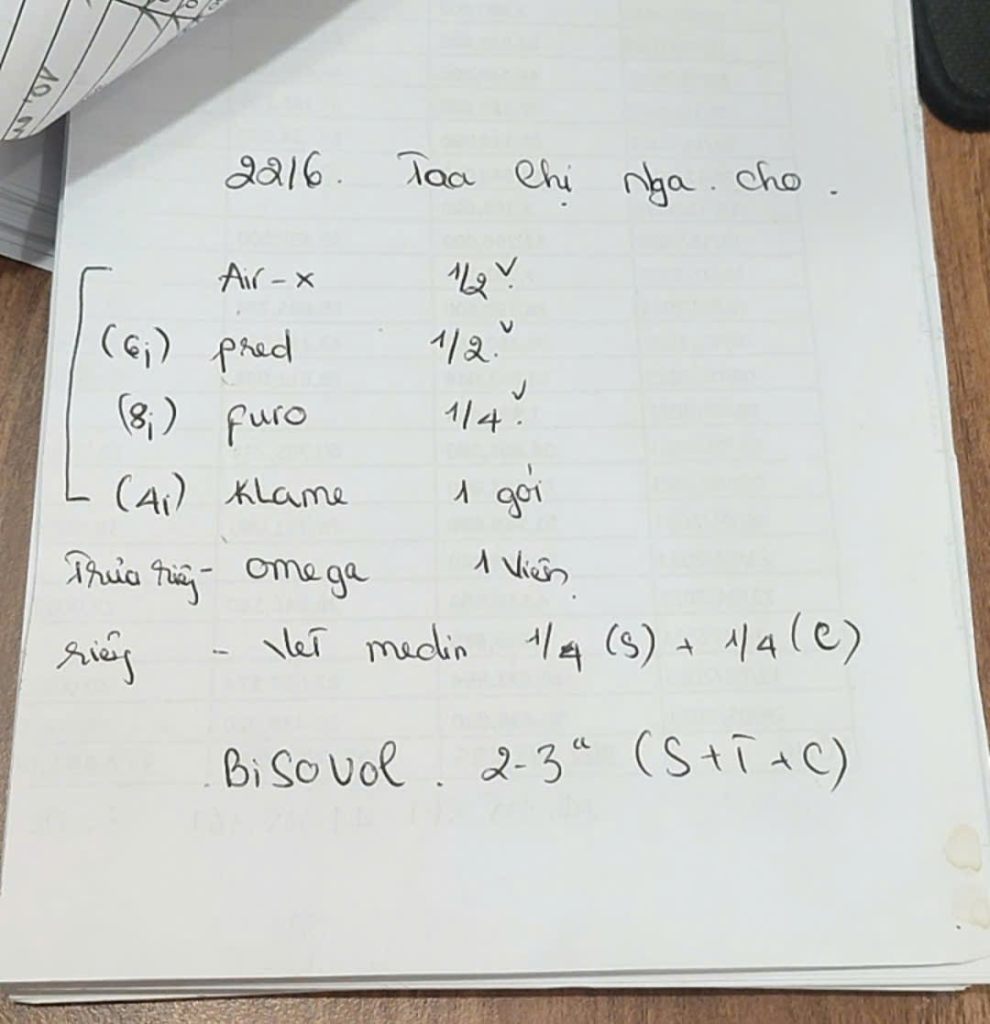 22/6. Toa Chị Nga. cho.
Air-x 1/2 v.
(6i) pred 1/2 v.
(8i) furo 1/4 v.
(4i) Klame 1 gói
Trưa riêng - omega 1 viên.
riêng - Vet medin 1/4 (S) + 1/4 (C)
Bisovol. 2-3 (S+T+C)